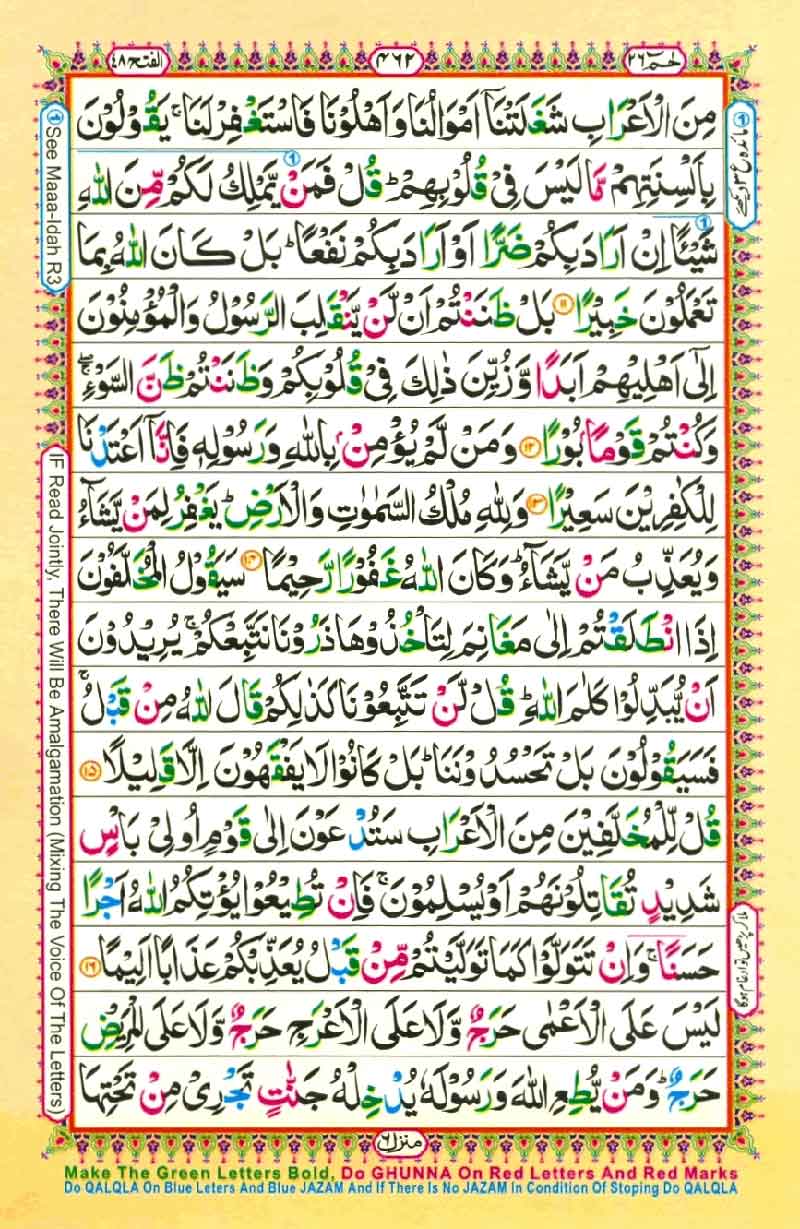 حٰمٓ ٢٦
٤٦٢
الفتح ٤٨
مِنَ الْاَعْرَابِ شَغَلَتْنَاۤ اَمْوَالُنَا وَاَهْلُوْنَا فَاسْتَغْفِرْ لَنَا ۚ یَقُوْلُوْنَ
بِاَلْسِنَتِهِمْ مَّا لَیْسَ فِیْ قُلُوْبِهِمْ ؕ قُلْ فَمَنْ یَّمْلِكُ لَكُمْ مِّنَ اللّٰهِ
شَیْـًٔا اِنْ اَرَادَ بِكُمْ ضَرًّا اَوْ اَرَادَ بِكُمْ نَفْعًا ؕ بَلْ كَانَ اللّٰهُ بِمَا
تَعْمَلُوْنَ خَبِیْرًا ﴿۱۱﴾ بَلْ ظَنَنْتُمْ اَنْ لَّنْ یَّنْقَلِبَ الرَّسُوْلُ وَالْمُؤْمِنُوْنَ
اِلٰۤی اَهْلِیْهِمْ اَبَدًا وَّزُیِّنَ ذٰلِكَ فِیْ قُلُوْبِكُمْ وَظَنَنْتُمْ ظَنَّ السَّوْءِ ۖۚ
وَكُنْتُمْ قَوْمًۢا بُوْرًا ﴿۱۲﴾ وَمَنْ لَّمْ یُؤْمِنْۢ بِاللّٰهِ وَرَسُوْلِهٖ فَاِنَّاۤ اَعْتَدْنَا
لِلْكٰفِرِیْنَ سَعِیْرًا ﴿۱۳﴾ وَلِلّٰهِ مُلْكُ السَّمٰوٰتِ وَالْاَرْضِ ؕ یَغْفِرُ لِمَنْ یَّشَآءُ
وَیُعَذِّبُ مَنْ یَّشَآءُ ؕ وَكَانَ اللّٰهُ غَفُوْرًا رَّحِیْمًا ﴿۱۴﴾ سَیَقُوْلُ الْمُخَلَّفُوْنَ
اِذَا انْطَلَقْتُمْ اِلٰی مَغَانِمَ لِتَاْخُذُوْهَا ذَرُوْنَا نَتَّبِعْكُمْ ۚ یُرِیْدُوْنَ
اَنْ یُّبَدِّلُوْا كَلٰمَ اللّٰهِ ؕ قُلْ لَّنْ تَتَّبِعُوْنَا كَذٰلِكُمْ قَالَ اللّٰهُ مِنْ قَبْلُ ۚ
فَسَیَقُوْلُوْنَ بَلْ تَحْسُدُوْنَنَا ؕ بَلْ كَانُوْا لَا یَفْقَهُوْنَ اِلَّا قَلِیْلًا ﴿۱۵﴾
قُلْ لِّلْمُخَلَّفِیْنَ مِنَ الْاَعْرَابِ سَتُدْعَوْنَ اِلٰی قَوْمٍ اُولِیْ بَاْسٍ
شَدِیْدٍ تُقَاتِلُوْنَهُمْ اَوْ یُسْلِمُوْنَ ۚ فَاِنْ تُطِیْعُوْا یُؤْتِكُمُ اللّٰهُ اَجْرًا
حَسَنًا ۚ وَاِنْ تَتَوَلَّوْا كَمَا تَوَلَّیْتُمْ مِّنْ قَبْلُ یُعَذِّبْكُمْ عَذَابًا اَلِیْمًا ﴿۱۶﴾
لَیْسَ عَلَی الْاَعْمٰی حَرَجٌ وَّلَا عَلَی الْاَعْرَجِ حَرَجٌ وَّلَا عَلَی الْمَرِیْضِ
حَرَجٌ ؕ وَمَنْ یُّطِعِ اللّٰهَ وَرَسُوْلَهٗ یُدْخِلْهُ جَنّٰتٍ تَجْرِیْ مِنْ تَحْتِهَا
منزل ٦
Make The Green Letters Bold, Do GHUNNA On Red Letters And Red Marks
Do QALQLA On Blue Leters And Blue JAZAM And If There Is No JAZAM In Condition Of Stoping Do QALQLA
① See Maaa-Idah R3
IF Read Jointly, There Will Be Amalgamation (Mixing The Voice Of The Letters)